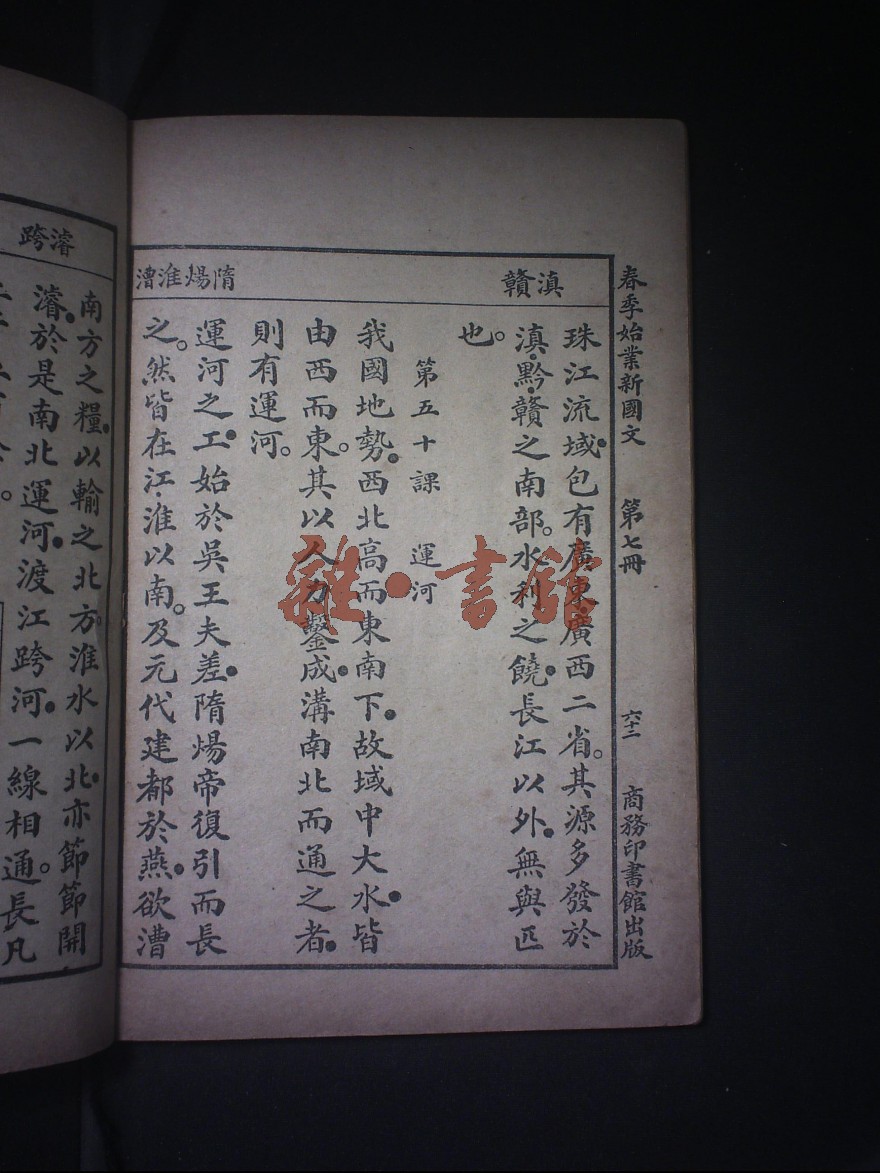 春季始業新國文 第七冊 六十二 商務印書館出版
滇贛 隋煬淮漕
珠江流域。包有廣東廣西二省。其源多發於
滇·黔·贛之南部。水利之饒。長江以外。無與匹
也。
第五十課 運河
我國地勢。西北高而東南下。故域中大水。皆
由西而東。其以人力鑿成。溝南北而通之者。
則有運河。
運河之工。始於吳王夫差。隋煬帝復引而長
之。然皆在江·淮以南。及元代建都於燕。欲漕
濬跨
南方之糧。以輸之北方。淮水以北。亦節節開
濬。於是南北運河。渡江跨河。一線相通。長凡
雜·書館